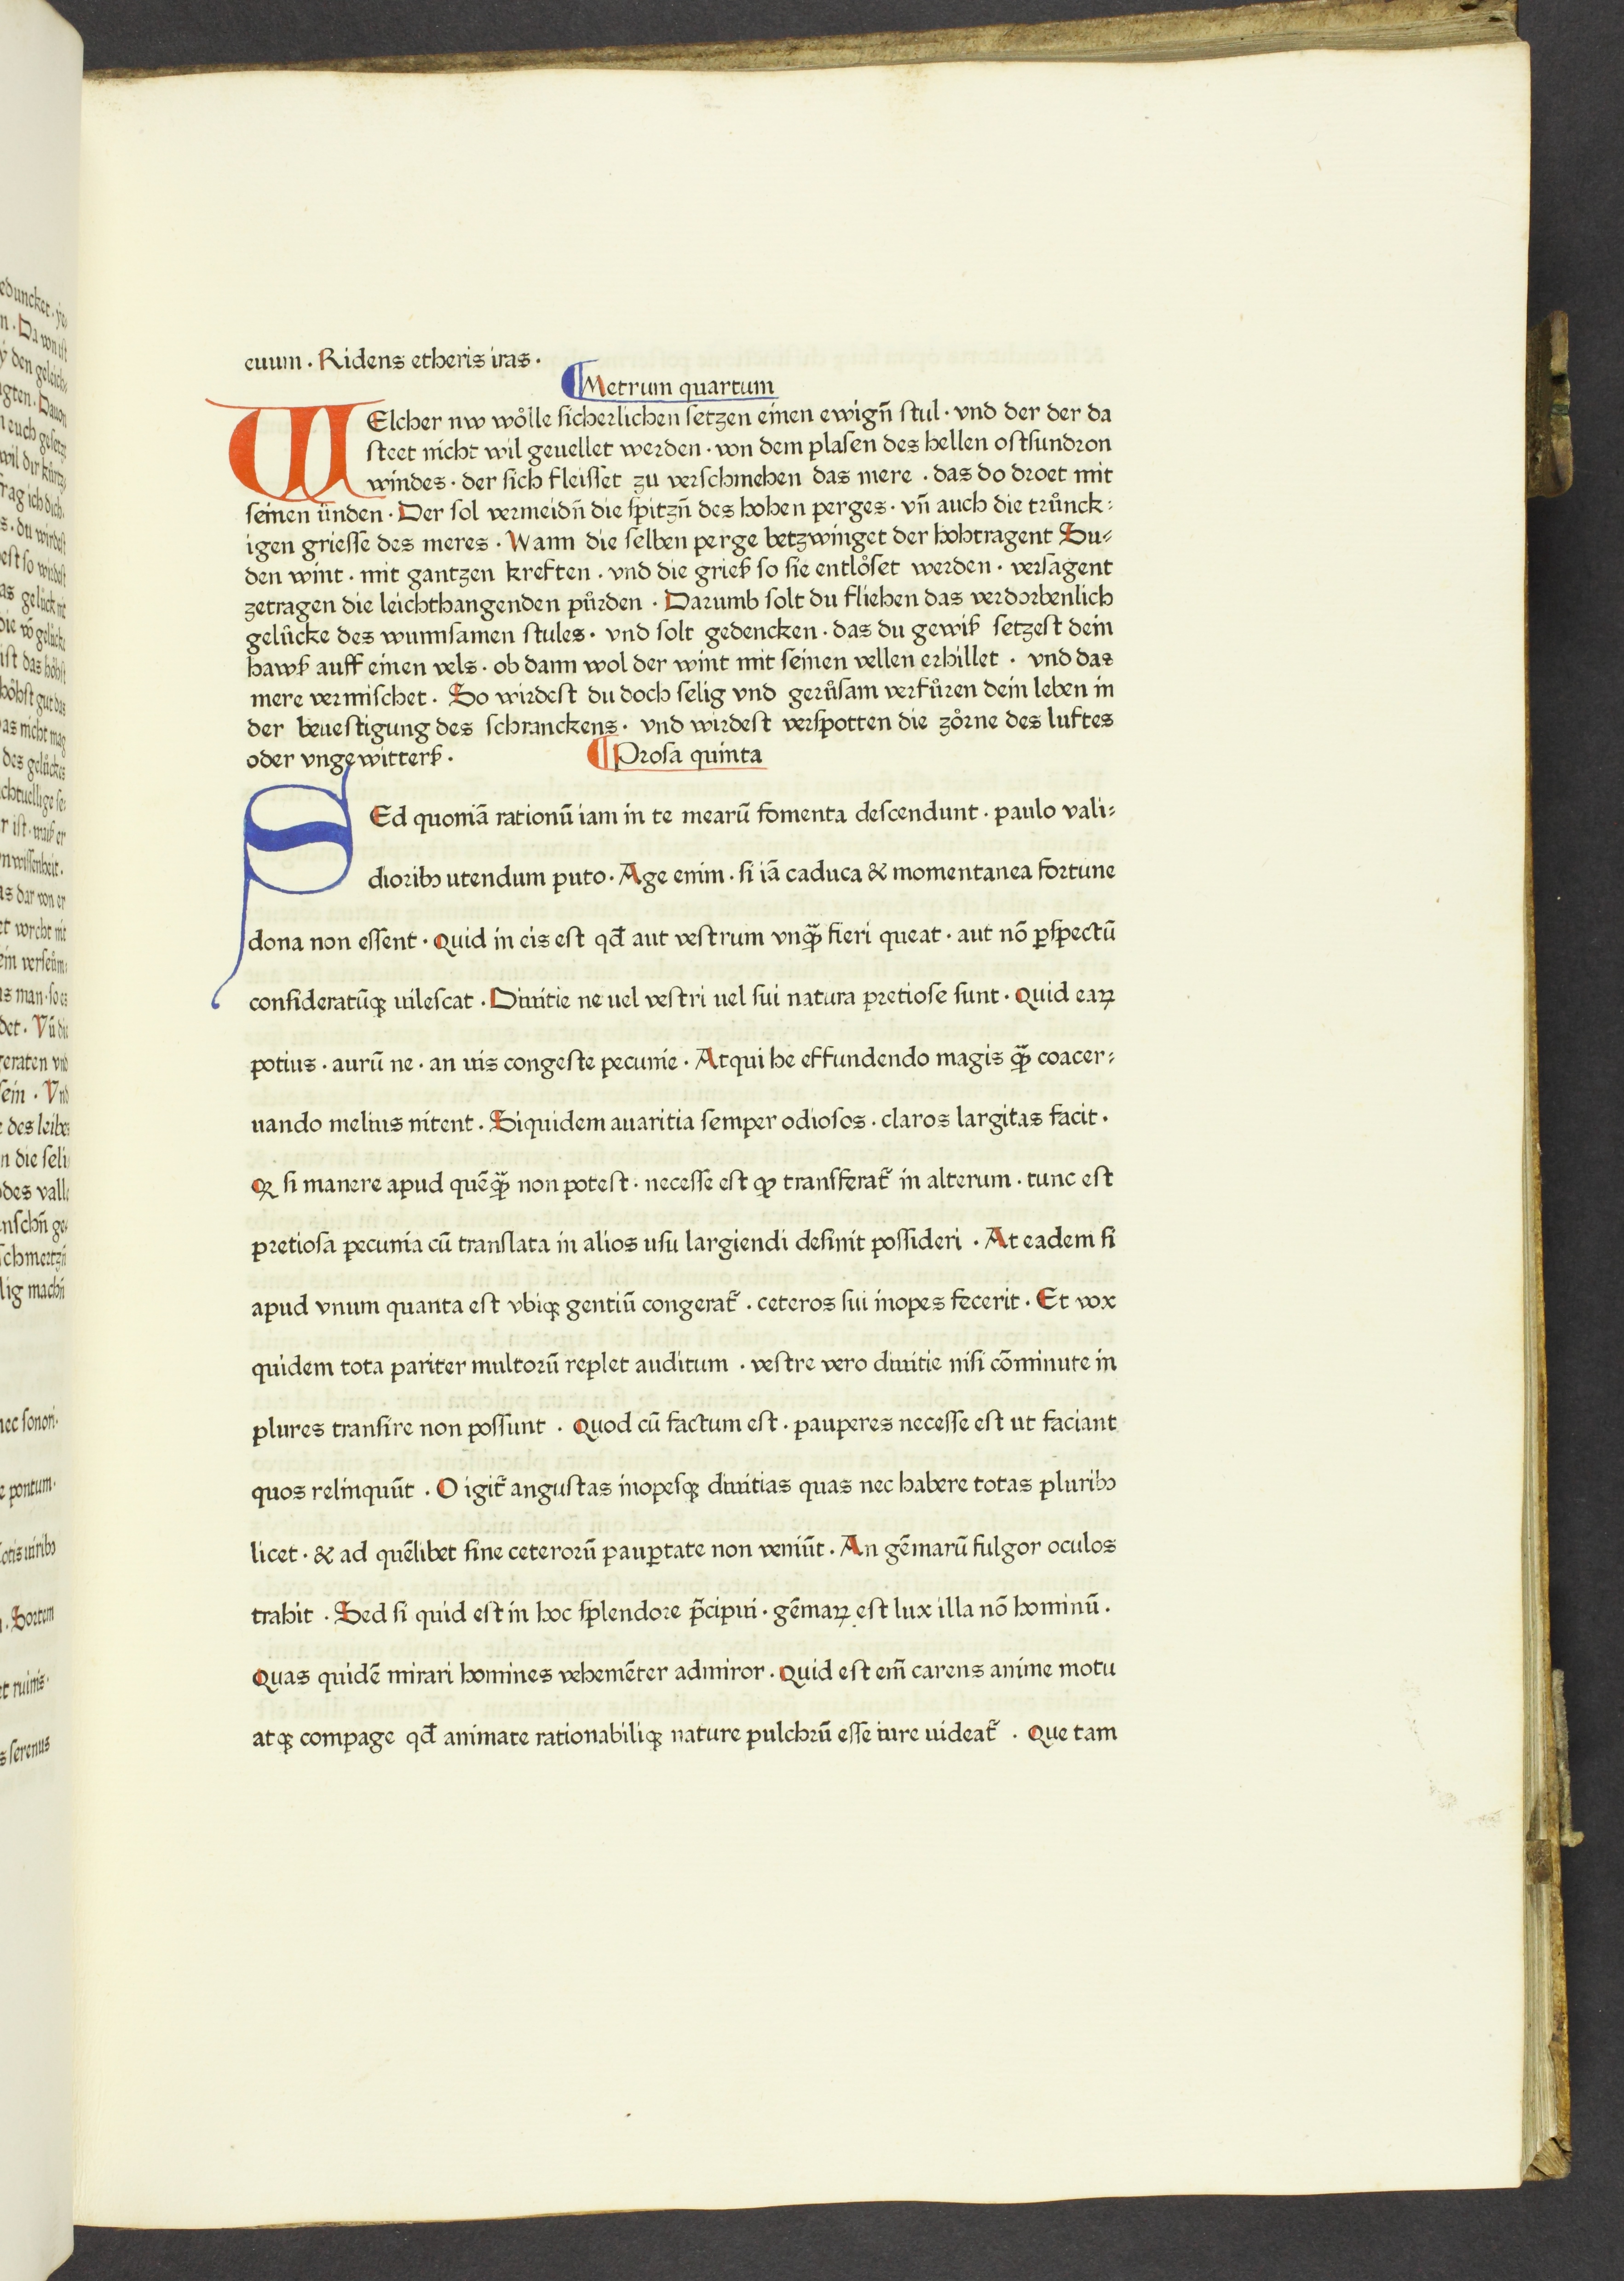 euum · Ridens etheris iras ·
Metrum quartum
WElcher nw woͤlle sicherlichen setzen einen ewign̄ stul · vnd der der da
steet nicht wil geuellet werden · von dem plasen des hellen ostsundron
windes · der sich fleisset zu verschmehen das mere · das do droet mit
seinen ünden · Der sol vermeidn̄ die spitzn̄ des hohen perges · vn̄ auch die truͦnck:
igen griesse des meres · Wann die selben perge betzwinget der hohtragent Su-
den wint · mit gantzen kreften · vnd die grieß so sie entloͤset werden · versagent
zetragen die leichthangenden puͤrden · Darumb solt du fliehen das verdorbenlich
geluͤcke des wunnsamen stules · vnd solt gedencken · das du gewiß setzest dein
hawß auff einen vels · ob dann wol der wint mit seinen vellen erhillet · vnd das
mere vermischet · So wirdest du doch selig vnd geruͦsam verfuͤren dein leben in
der beuestigung des schranckens · vnd wirdest verspotten die zoͤrne des luftes
oder vngewitterß ·
Prosa quinta
SEd quoniā rationū iam in te mearū fomenta descendunt · paulo vali:
dioribꝫ utendum puto · Age enim · si iā caduca & momentanea fortune
dona non essent · Quid in eis est qd̄ aut vestrum vnqꝫ̄ fieri queat · aut nō ꝑspectū
consideratūqꝫ uilescat · Diuitie ne uel vestri uel sui natura pretiose sunt · Quid eaꝝ
potius · aurū ne · an uis congeste pecunie · Atqui he effundendo magis qꝫ̄ coacer:
uando melius nitent · Siquidem auaritia semper odiosos · claros largitas facit ·
Qꝫ si manere apud quēqꝫ̄ non potest · necesse est ꝙ transferat̄ in alterum · tunc est
pretiosa pecunia cū translata in alios usu largiendi desinit possideri · At eadem si
apud vnum quanta est vbiqꝫ gentiū congerat̄ · ceteros sui inopes fecerit · Et vox
quidem tota pariter multorū replet auditum · vestre vero diuitie nisi cōminute in
plures transire non possunt · Quod cū factum est · pauperes necesse est ut faciant
quos relinquūt · O igit̄ angustas inopesqꝫ diuitias quas nec habere totas pluribꝫ
licet · & ad quēlibet sine ceterorū pauꝑtate non veniūt · An gēmarū fulgor oculos
trahit · Sed si quid est in hoc splendore p̄cipui · gēmaꝝ est lux illa nō hominū ·
Quas quidē mirari homines vehemēter admiror · Quid est em̄ carens anime motu
atqꝫ compage qd̄ animate rationabiliqꝫ nature pulchrū esse iure uideat̄ · Que tam